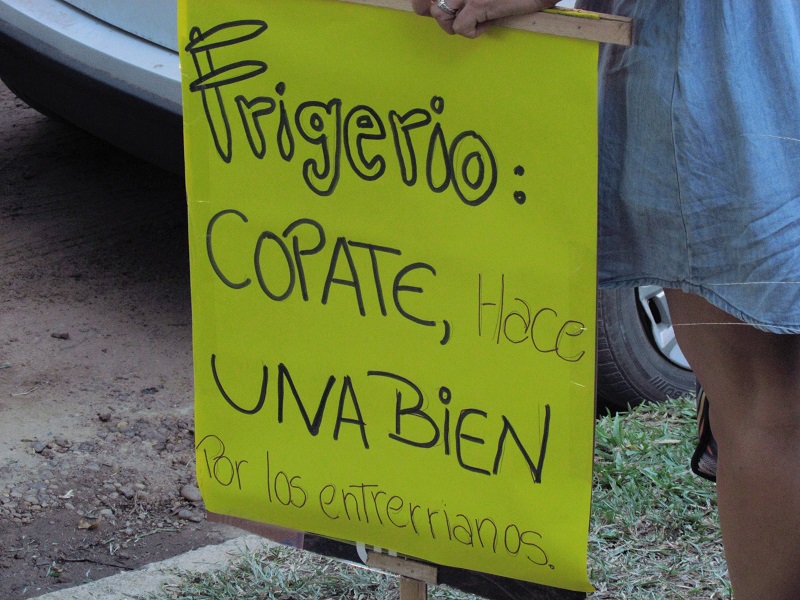 Frigerio:
COPATE, Hace
UNA BIEN
Por los entrerrianos.